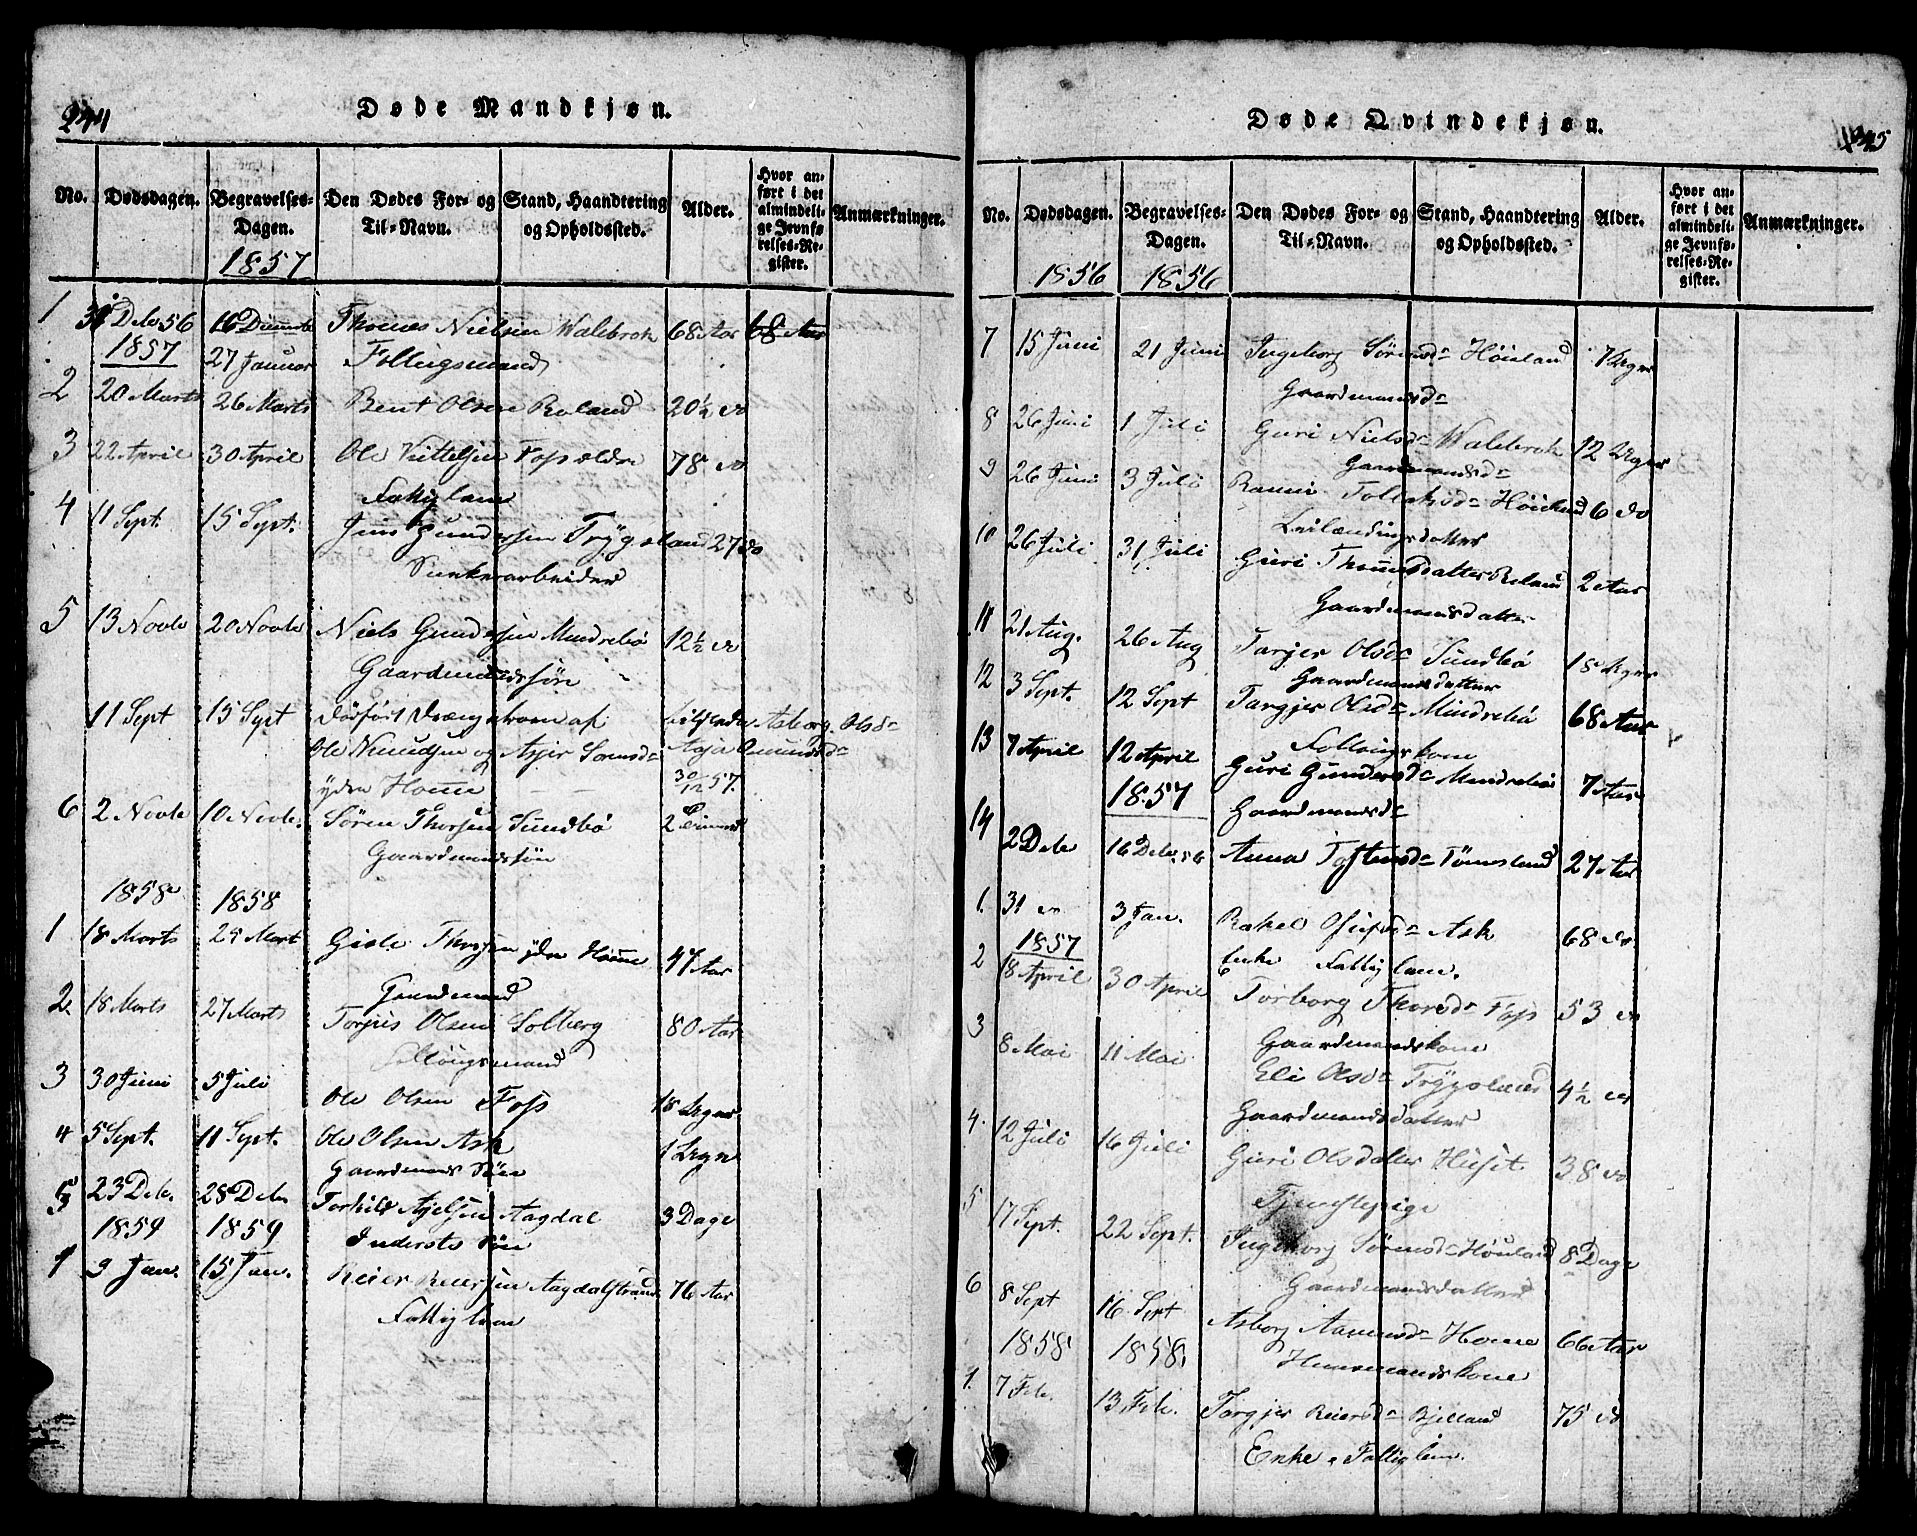 244
Døde Mandkjøn.
No. Dødsdagen. Begravelses-Dagen. Den Dødes For- og Til-Navn. Stand, Haandtering og Opholdssted. Alder. Hvor anført i det almindelige Jevnførelses-Register. Anmærkninger.
1857
1 31 Debr 56 16 68 Aar 68 Aar
Thomas Nielsen Walebrok
1857 27 Januar Føllugsmand
2 20 Marts 26 Marts Bent Olsen Roland 20½ do
3 22 April 30 April Ole Kittelsen Foss ældre 78 do
Fattiglem
4 11 Sept. 15 Sept. Jens Gundersen Trygsland 27 do
arbeider
5 13 Novbr 20 Novbr Niels Gundersen Mindrebø 12½ do
Gaardmandssøn
11 Sept 15 Sept dødfødt Drengebarn af Asborg Olsdr
Ole Knudsen og Asjer Sørensdr
ydre Homme 30/12 57.
6 2 Novbr 10 Novbr. Søren Thorsen Sundbø 2
Gaardmandssøn
1858 1858
1 18 Marts 29 Mart Gisle Thorsen ydre Homme 47 Aar
Gaardmand
2 18 Marts 27 Marts Torjus Olsen Solberg 80 Aar
Føllougsmand
3 30 Juni 5 Juli Ole Olsen Foss 18 Uger
4 5 Sept. 11 Sept. Ole Olsen Ask 1 Ugn
Gaardmands Søn
5 23 Debr. 28 Debr Torkild Ajelsen Aagdal 3 Dage
1859 1859 Inderste Søn
1 9 Jan. 15 Jan. Reier Reiersen Aagdalstrand 76 Aar
Fattiglem
245
Døde Qvindekjøn.
No. Dødsdagen. Begravelses-Dagen. Den Dødes For- og Til-Navn. Stand, Haandtering og Opholdssted. Alder. Hvor anført i det almindelige Jevnførelses-Register. Anmærkninger.
1856 1856
7 15 Juni 21 Juni Ingeborg Sørensdr Høiland 7 Uger
Gaardmandsdr
8 26 Juni 1 Juli Guri Nielsdr Walebrok 12 Uger
Gaardmandsdr
9 26 Juni 3 Juli Tollaksdr Høieland 6 do
Leilændingsdatter
10 26 Juli 31 Juli Guri Thomasdatter Roland 2 Aar
Gaardmandsdatter
11 21 Aug. 26 Aug Tarjer Olsdr Sundbø 18 Uger
Gaardmandsdatter
12 3 Sept. 12 Sept Targjer Olsdr Mindrebø 68 Aar
Føllougskone
13 7 April 12 April Guri Gundersdr Mindrebø 7 Aar
1857 Gaardmandsdr
14 2 Debr 16 Debr 56 Anna Tostensdr Tømesland 27 Aar
1. 31 do 3 Jan. Rakel Osufsdr Ask 68 do
1857 Enke Fattiglem.
2 18 April 30 April Torborg Thorsdr Foss 53 do
Gaardmandskone
3 8 Mai 11 Mai Eli Olsdr Trygsland 4½ do
Gaardmandsdatter
4. 12 Juli 16 Juli Guri Olsdatter Huset 38 do
Tjenestepige
5 17 Sept. 22 Sept. Ingeborg Sørensdr Høuland 8 Dage
Gaardmandsdatter
6 8 Sept 16 Sept Asborg Aamundsdr Homme 66 Aar
1858 1858. Huusmandskone
1. 7 Feb. 13 Feb. Targjer Reiersdr Bjelland 75 do
Enke, Fattiglem.